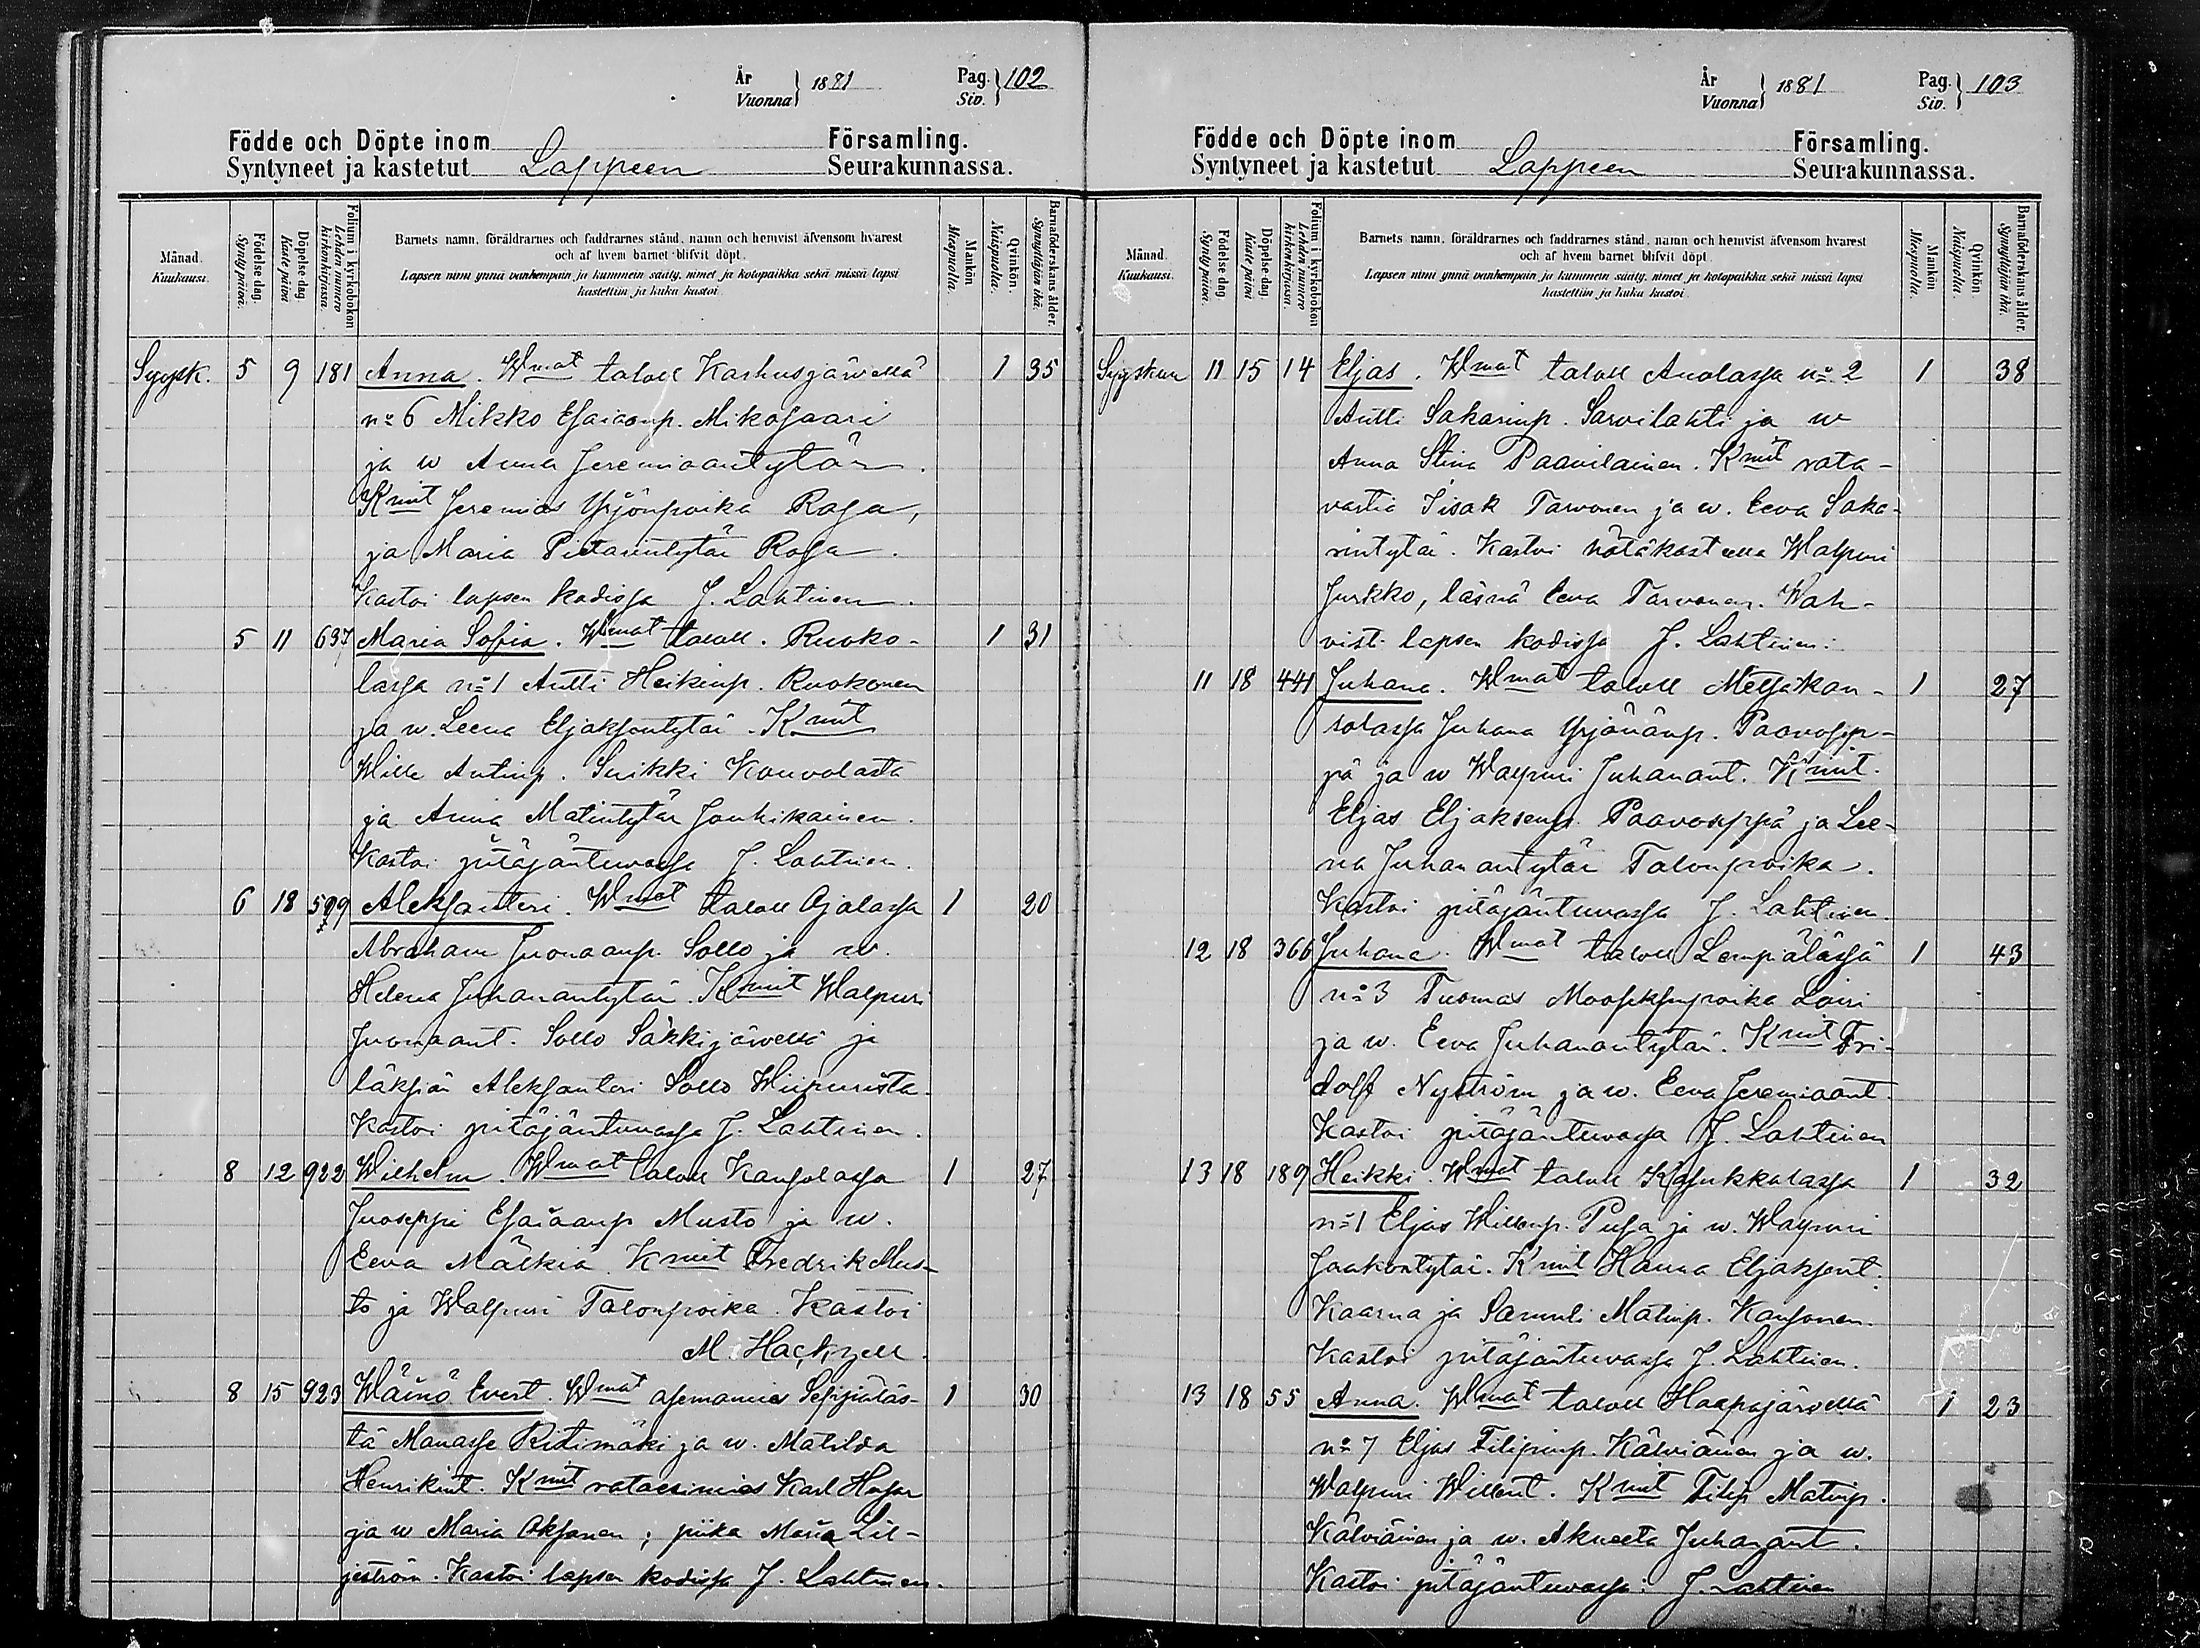 År
Vuonna } 1881 Pag.
Siv. } 102
Födde och Döpte inom Församling.
Syntyneet ja kastetut Lappeen Seurakunnassa.
Månad.
Kuukausi.
Födelse dag.
Synty päivä.
Döpelse dag
Kaste päivä
Folium i kyrkobokon
Lehden numero
kirkonkirjassa.
Barnets namn, föräldrarnes och faddrarnes stånd, namn och hemvist äfvensom hvarest
och af hvem barnet blifvit döpt.
Lapsen nimi ynnä vanhempain ja kummein sääty, nimet ja kotopaikka sekä missä lapsi
kastettiin ja kuka kastoi.
Mankön
Miespuolia.
Qvinkön.
Naispuolia.
Barnaföderskans ålder.
Synnyttäjän ikä.
Syysk. 5 9 181 Anna. Wmat taloll Karhusjärvellä 1 35
no 6 Mikko Esaiaanp. Mikosaari
ja w Anna Jeremiaantytär.
Kmit Jeremias Yrjönpoika Rasa,
ja Maria Pietarintytär Rasa.
Kastoi lapsen kodissa J. Lahtinen.
5 11 637 Maria Sofia. Wmat taloll. Ruoko- 1 31
lassa no 1 Antti Heikinp. Ruokonen
ja w. Leena Eljaksentytär. Kmit
Wille Antinp. Suikki Kouvolasta
ja Anna Matintytär Jouhikainen.
Kastoi pitäjäntuvassa J. Lahtinen.
6 18 599 Aleksanteri. Wmat taloll Ojalassa 1 20
Abraham Juonaanp. Sollo ja w.
Helena Juhanantytär. Kmit Walpuri
Juonaant. Sollo Säkkijärvellä ja
läksiän Aleksanteri Sollo Wiipurista.
Kastoi pitäjäntuvassa J. Lahtinen.
8 12 922 Wilhelm. Wmat taloll Kansolassa 1 27
Juoseppi Esaiaanp Musto ja w.
Eeva Mälkiä. Kmit Fredrik Mus-
to ja Walpuri Talonpoika. Kastoi
M. Hackzell.
8 15 923 Wäinö Evert. Wmat asemamies Seppäläs- 1 30
tä Manasse Ristimäki ja w. Matilda
Henrikint. Kmit rataesimies Karl
ja w Maria Oksanen; piika Maria Lil-
jeström. Kastoi lapsen kodissa J. Lahtinen.
År
Vuonna } 1881 Pag.
Siv. } 103
Födde och Döpte inom Församling.
Syntyneet ja kastetut Lappeen Seurakunnassa.
Månad.
Kuukausi.
Födelse dag
Synty päivä.
Döpelse dag
Kaste päivä
Folium i kyrkobokon
Lehden numero
kirkonkirjassa.
Barnets namn, föräldrarnes och faddrarnes stånd, namn och hemvist äfvensom hvarest
och af hvem barnet blifvit döpt.
Lapsen nimi ynnä vanhempain ja kummein sääty, nimet ja kotopaikka sekä missä lapsi
kastettiin ja kuka kastoi.
Mankön
Miespuolia.
Qvinkön
Naispuolia.
Barnaföderskans ålder.
Synnyttäjän ikä.
Syyskuu 11 15 14 Eljas. Wmat taloll Anolassa no 2 1 38
Antti Sakarinp. Sarvilahti ja w
Anna Stina Paavilainen. Kmit rata-
vartia Iisak Tarvonen ja w. Eeva Saka-
rintytär. Kastoi hätäkasteella Walpuri
Jurkko, läsnä Eeva Tarvonen. Wah-
visti lapsen kodissa J. Lahtinen.
11 18 441 Juhana. Wmat taloll Metsäkan- 1 27
solassa Juhana Yrjänänp. Paavosep-
pä ja w Walpuri Juhanant. Kmit.
Eljas Eljaksenp. Paavoseppä ja Lee-
na Juhanantytär Talonpoika.
Kastoi pitäjäntuvassa J. Lahtinen.
12 18 366 Juhana. Wmat taloll Lempiälässä 1 43
no 3 Tuomas Mooseksenpoika Loiri
ja w. Eeva Juhanantytär. Kmit Fri-
dolf Nyström ja w. Eeva Jeremiaant.
Kastoi pitäjäntuvassa J. Lahtinen
13 18 189 Heikki. Wmat taloll Kasukkalassa 1 32
no 1 Eljas Willenp. Pusa ja w. Walpuri
Jaakontytär. Kmit Hanna Eljaksent.
Kaarna ja Samuli Matinp. Kansonen.
Kastoi pitäjäntuvassa J. Lahtinen.
13 18 55 Anna. Wmat taloll Haapajärvellä 1 23
no 7 Eljas Filipinp. Kälviäinen ja w.
Walpuri Willent. Kmit Filip Matinp.
Kälviäinen ja w. Akneeta Juhanant.
Kastoi pitäjäntuvassa. J. Lahtinen